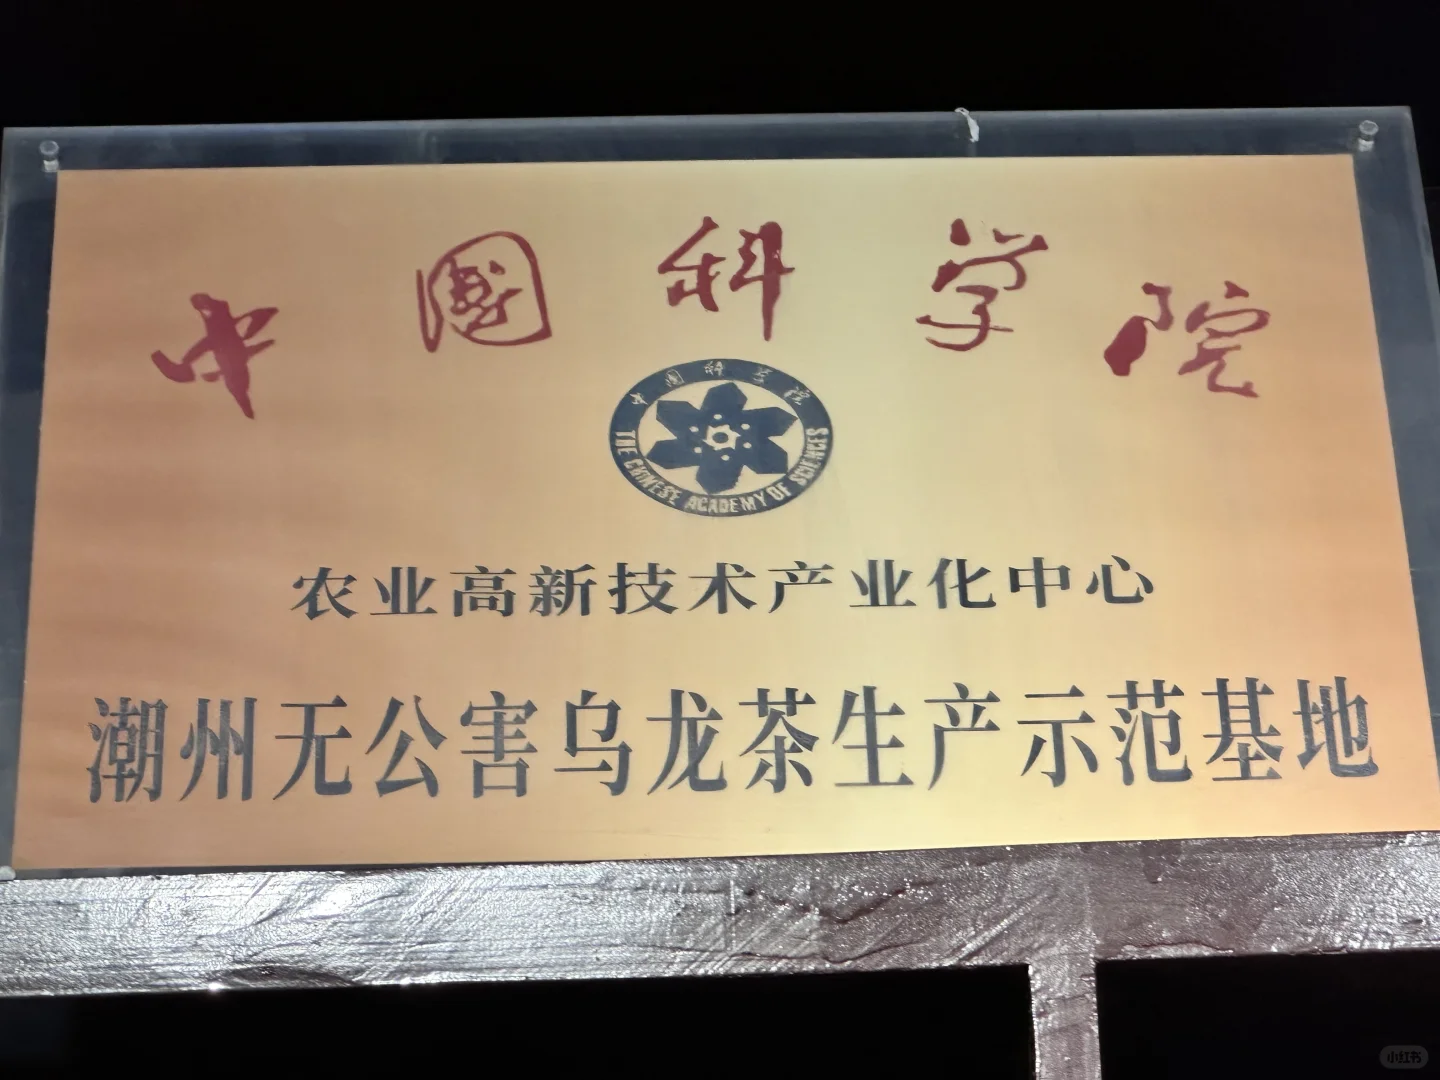 中國科学院
中国科学院
THE CHINESE ACADEMY OF SCIENCES
农业高新技术产业化中心
潮州无公害乌龙茶生产示范基地
小红书